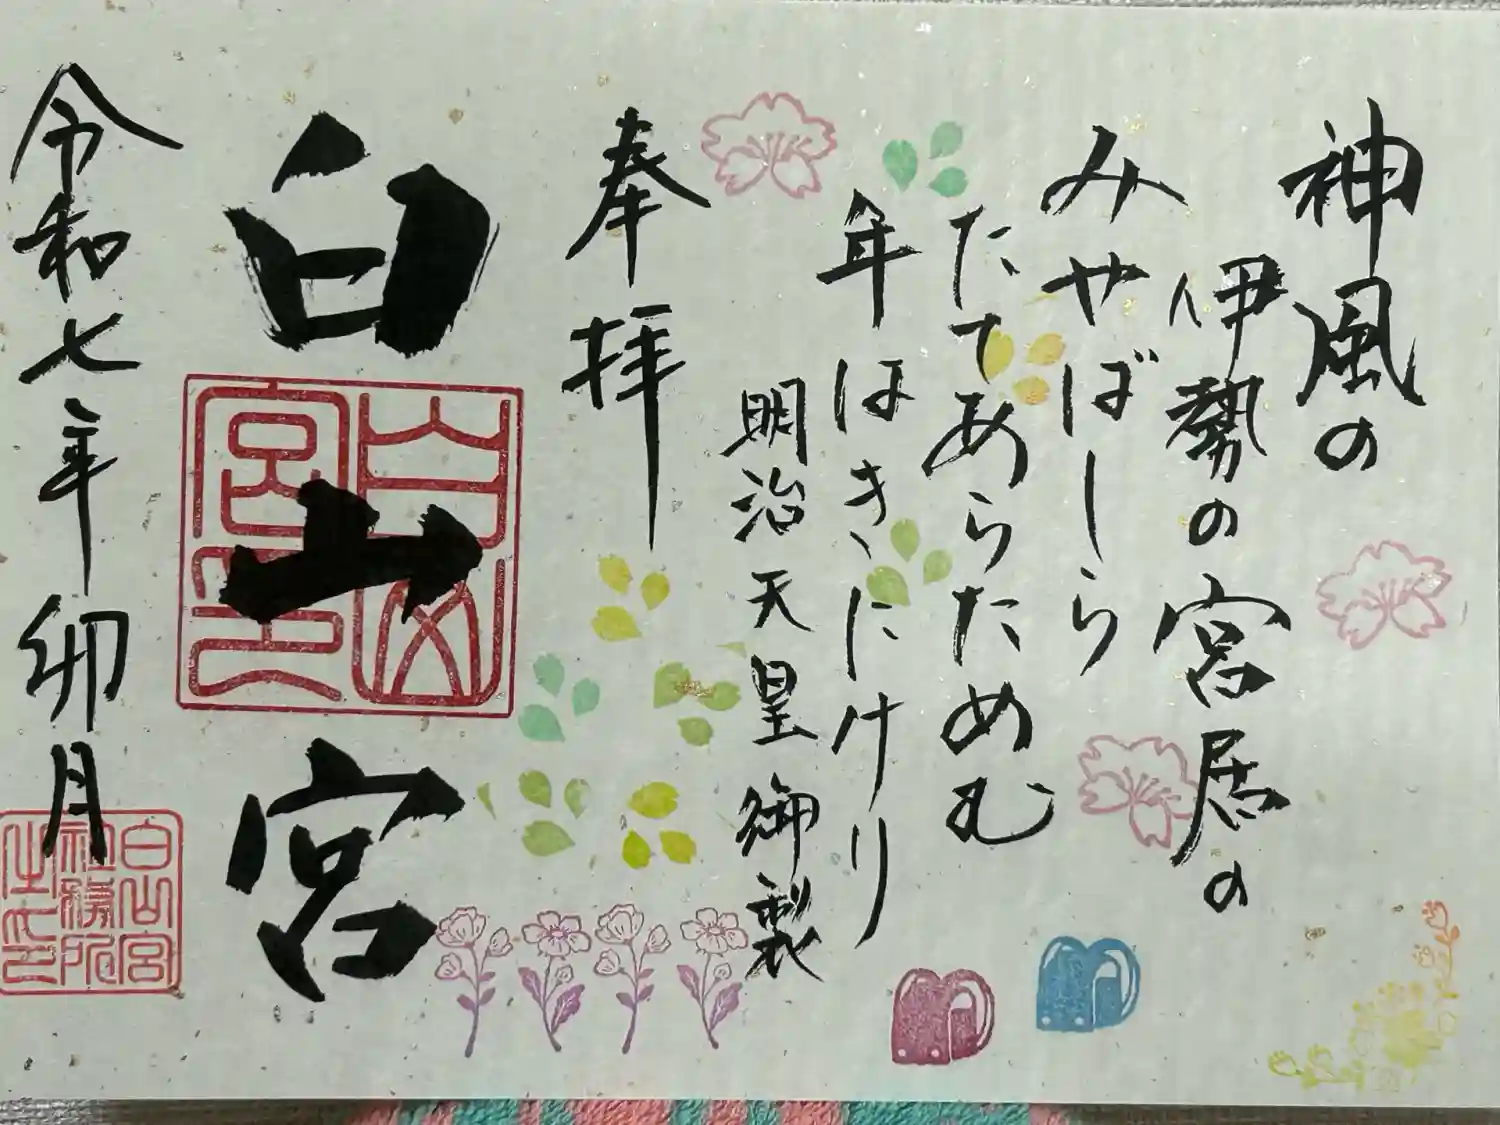 神風の
伊勢の宮居の
みやばしら
たてあらたむ
年はきにけり
明治天皇御製
奉拝
白山宮
白山宮印
令和七年卯月
白山宮
社務所
之印